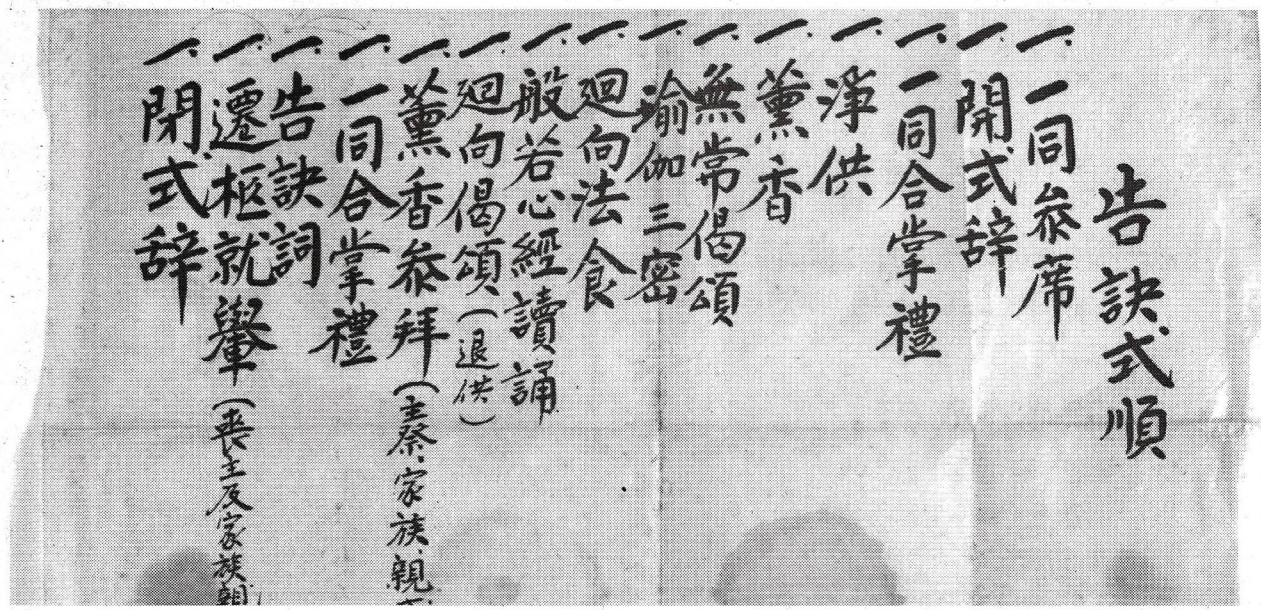 告訣式順
一、一同叅席
一、開式辞
一、一同合掌禮
一、淨供
一、薰香
一、無常偈頌
一、瑜伽三密
一、廻向法食
一、般若心經讀誦
一、廻向偈頌(退供)
一、薰香叅拜(主祭、家族、親
一、一同合掌禮
一、告訣詞
一、遷柩就轝(喪主及家族親
一、閉式辞